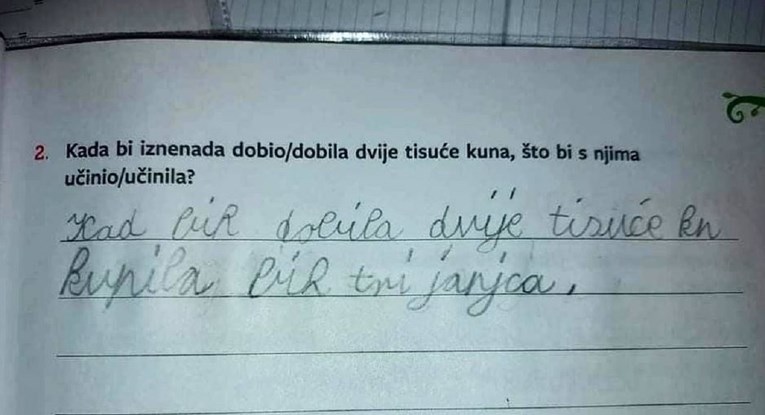 2. Kada bi iznenada dobio/dobila dvije tisuće kuna, što bi s njima
učinio/učinila?
Kad bih dobila dvije tisuće kn
kupila bih tri janjca.